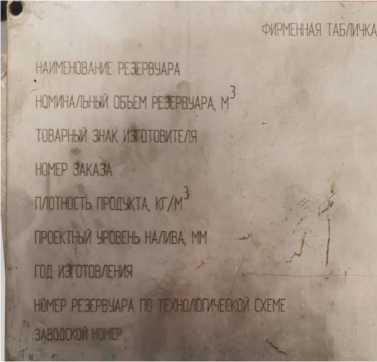 ФИРМЕННАЯ ТАБЛИЧКА
НАИМЕНОВАНИЕ РЕЗЕРВУАРА
НОМИНАЛЬНЫЙ ОБЪЕМ РЕЗЕРВУАРА, М³
ТОВАРНЫЙ ЗНАК ИЗГОТОВИТЕЛЯ
НОМЕР ЗАКАЗА
ПЛОТНОСТЬ ПРОДУКТА, КГ/М³
ПРОЕКТНЫЙ УРОВЕНЬ НАЛИВА, ММ
ГОД ИЗГОТОВЛЕНИЯ
НОМЕР РЕЗЕРВУАРА ПО ТЕХНОЛОГИЧЕСКОЙ СХЕМЕ
ЗАВОДСКОЙ НОМЕР